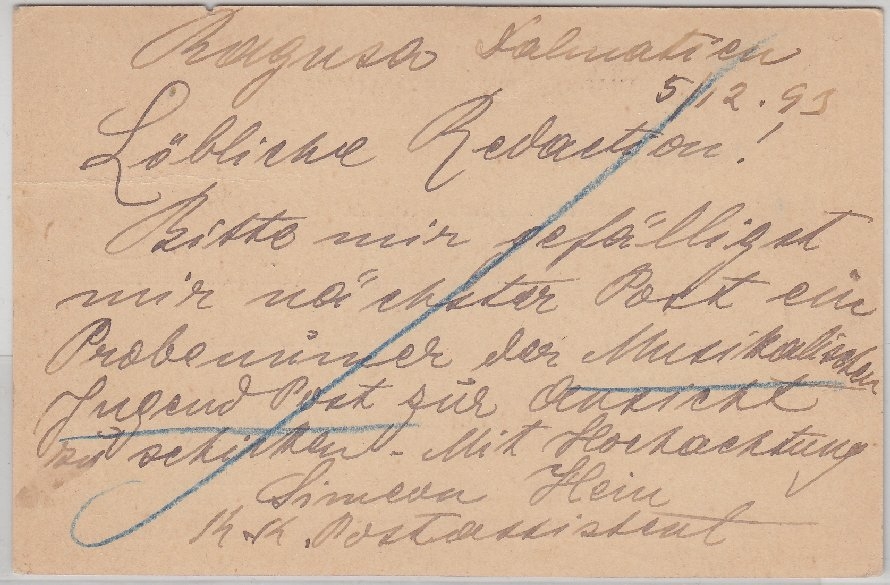 Ragusa Dalmatien
5/12.93
Löbliche Redaction!
Bitte mir gefälligst
mir nächster Post ein
Probenumer der Musikalischen
Jugend Post zur Ansicht
zu schicken - Mit Hochachtung
Simeon Hein
K.K. Postassistent